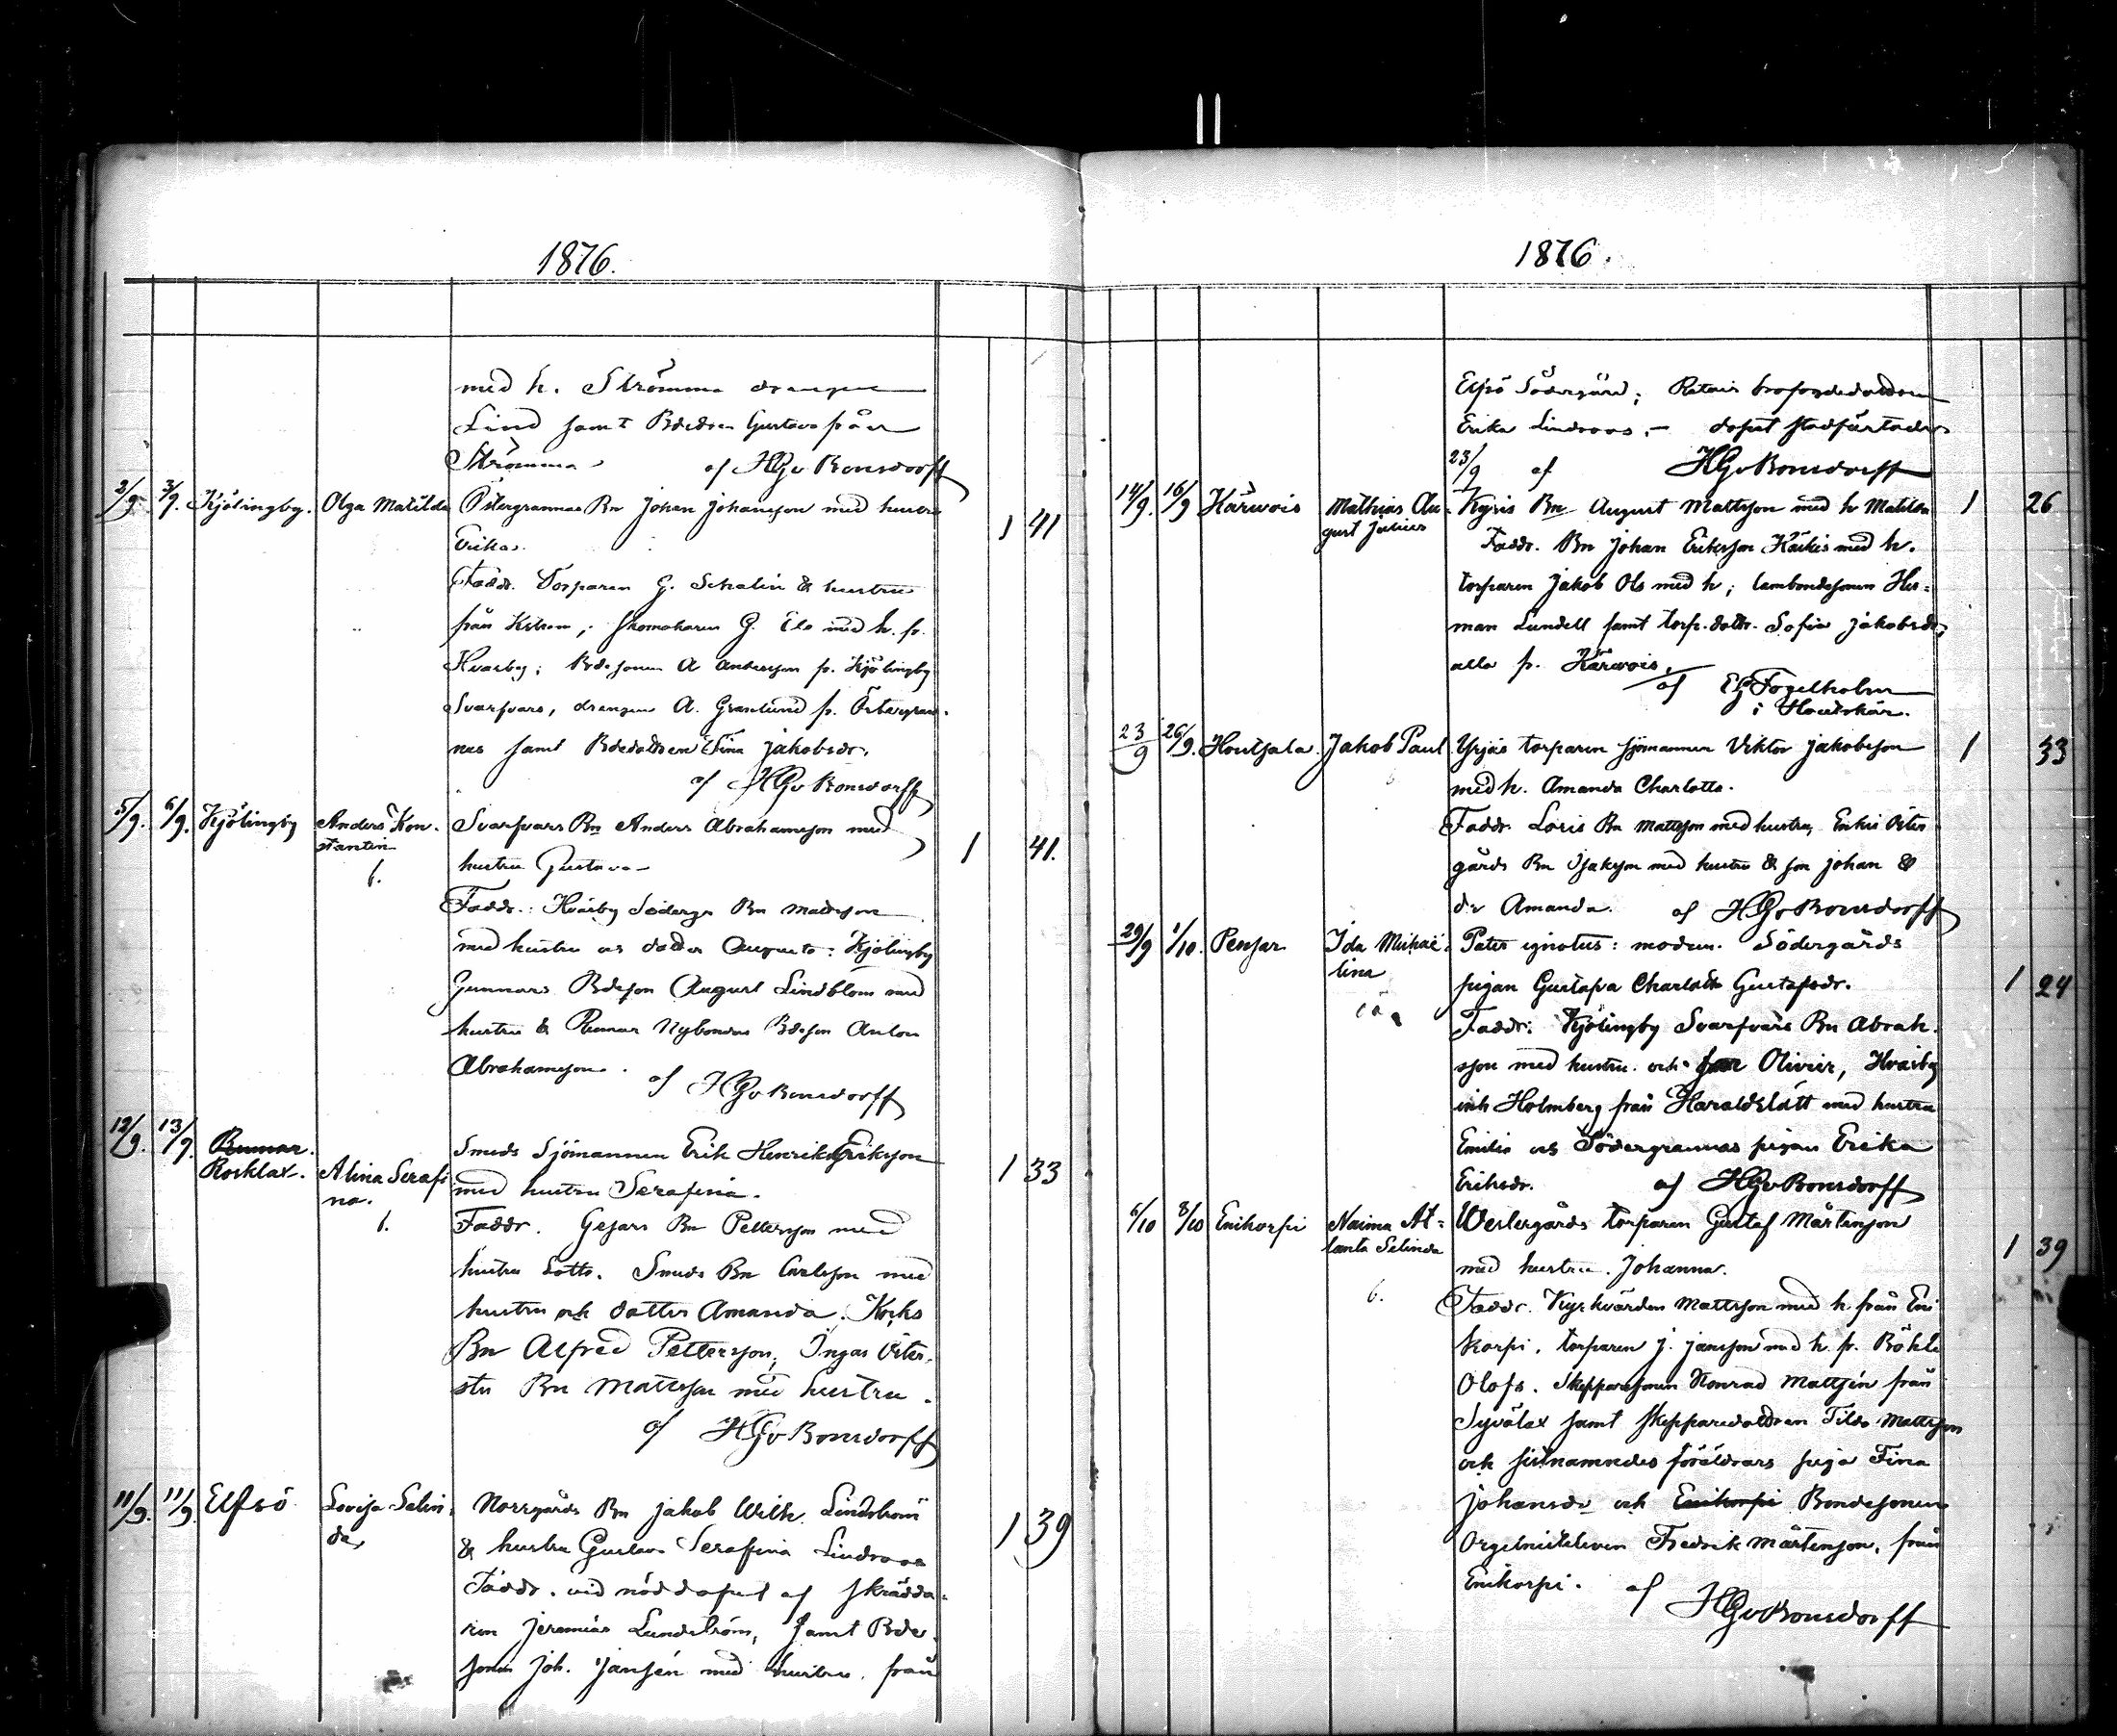 1876.
med h. Strömma drängen
Lind samt Bdedren Gustava från
Strömma af HGvBonsdorff
2/9. 3/9. Kjölingby. Olga Matilda Östergrannas Bn Johan Johansson med hustru 1 41
Erika.
Faddr. Torparen G. Schalin & hustru
från; skomakaren G. Elo med h. fr.
Hvarby; Bdesonen A Andersson fr. Kjölingby
Svarfvars, drängen A. Granlund fr. Östergran-
nas samt Bdedottren Sina Jakobsdr.
af HGvBonsdorff
5/9. 6/9. Kjölingby Anders Kon- Svarfvars Bn Anders Abrahamsson med 1 41.
stantin hustru Gustava
Faddr.: Hvarby Söderg. Bn Mattsson
med hustru och dotter Augusta: Kjölingby
Gunnars Bdeson August Lindblom med
hustru & Remar Nybondas Bdeson Anton
Abrahamsson.
af HGvBonsdorff
12/9. 13/9. Remar.
Rosklax. Alina Serafi Smeds Sjömannen Erik Henrik Eriksson 1 33
na. med hustru Serafina.
Faddr. Gesars Bn Pettersson med
hustru Lotta. Smeds Bn Carlsson med
hustru och dotter Amanda. Kocks
Bn Alfred Pettersson; Ingas Öster-
sta Bn Mattsson med hustru.
af HGvBonsdorff
11/9. 11/9. Elfsö Lovisa Selin- Norrgårds Bn Jakob Wilh. Lindström 1 39
da, & hustru Gustava Serafina Lindroos
Faddr. vid nöddopet af skrädda-
ren Jeremias Lundström, samt Bde-
sonen Joh. Jansén med hustru. från
1876.
Elfsö Södergård; Retais
Erika Lindroos. - dopet stadfästades
23/9 af HGvBonsdorff
14/9. 16/9 Kärwois Mathias Au- Kyris Bn August Mattsson med h Matilda 1 26
gust Julius Faddr. Bn Johan Eriksson Käckis med h.
torparen Jakob Ols med h; lambondesonen Her-
man Lundell samt torp.dottr. Sofia Jakobsdr;
alla fr. Kärwois,
af EG Fogelholm
i Houtskär.
23/9 26/9. Houtsala. Jakob Paul Yrjäs torparen sjömannen Viktor Jakobsson 1 33
med h. Amanda Charlotta.
Faddr. Loris Bn Mattsson med hustru, Enkis Öster
gårds Bn Isaksson med hustru & son Johan &
dr Amanda. af HGvBonsdorff
29/9 1/10. Pensar Ida Mikaë- Pater ignotus: modren. Södergårds
lina pigan Gustafva Charlotta Gustafsdr. 1 24
Faddr: Kjölingby Svarfvars Bn Abrah.
sson med hustru. och son Olivier, Hvarby
inh Holmberg från Haraldslått med hustru
Emilia och Södergrannas pigan Erika
Eriksdr. af HGvBonsdorff
6/10 8/10 Enikorpi Naima At- Westergårds torparen Gustaf Mårtenson
lanta Selinda med hustru. Johanna. 1 39
Faddr. Kyrkvärden Mattsson med h. från Eni
korpi, torparen J. Jansson med h. fr. Böhle
Olofs. Skepparesonen Konrad Mattsén från
Syvälax samt skepparedottren Tilda Mattsson
och sistnämndes föräldrars piga Fina
Johansdr och Enikorpi Bondesonen
Orgelnisteleven Fredrik Mårtenson. från
Enikorpi. af HGvBonsdorff